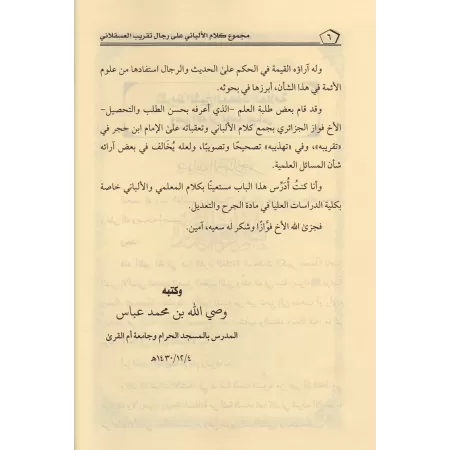 ٦ مجموع كلام الألباني على رجال تقريب العسقلاني
وله آراؤه القيمة في الحكم على الحديث والرجال استفادها من علوم
الأئمة في هذا الشأن، أبرزها في بحوثه.
وقد قام بعض طلبة العلم -الذي أعرفه بحسن الطلب والتحصيل-
الأخ فواز الجزائري بجمع كلام الألباني وتعقباته على الإمام ابن حجر في
«تقريبه»، وفي «تهذيبه» تصحيحًا وتصويبًا، ولعله يُخالف في بعض آرائه
شأن المسائل العلمية.
وأنا كنتُ أُدَرِّس هذا الباب مستعينًا بكلام المعلمي والألباني خاصة
بكلية الدراسات العليا في مادة الجرح والتعديل.
فجزىٰ الله الأخ فوَّازًا وشكر له سعيه، آمين.
وكتبه
وصي الله بن محمد عباس
المدرس بالمسجد الحرام وجامعة أم القرىٰ
١٤٣٠/١٢/٤هـ